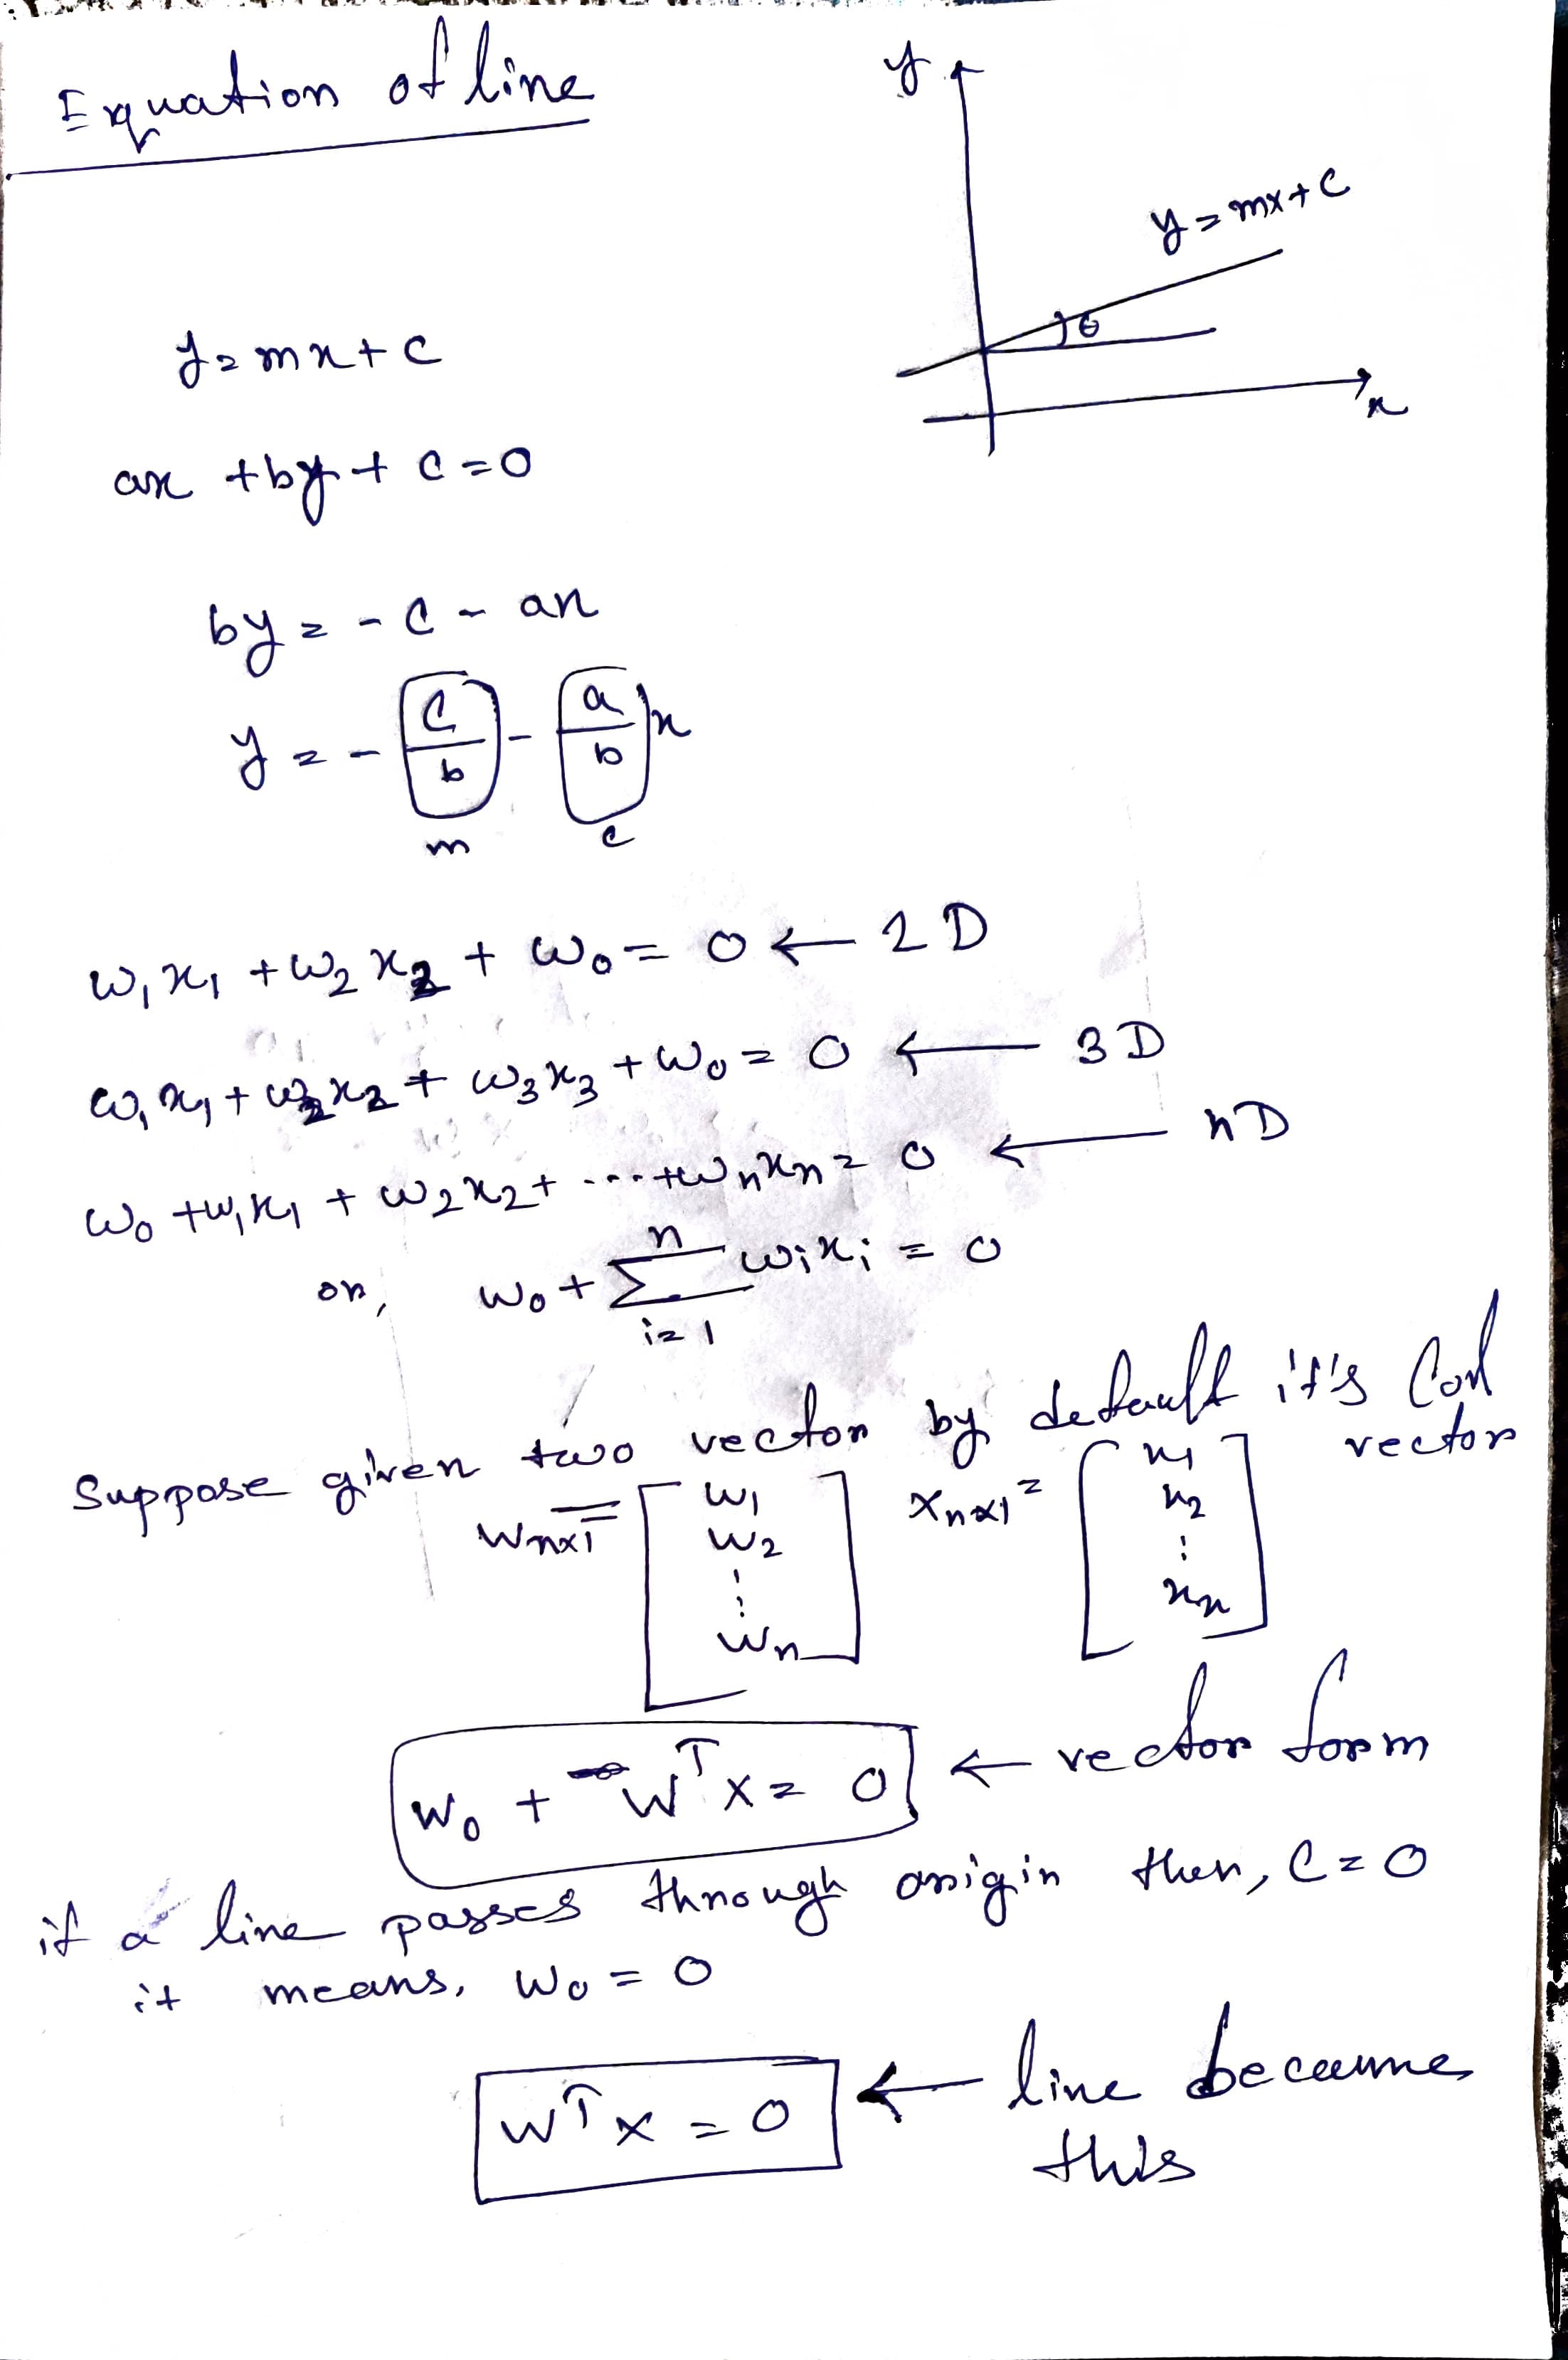 Equation of line
y
y = mx + c
θ
x
y = mx + c
ax + by + c = 0
by = - c - ax
y = - c/b - a/b x
m c
w₁x₁ + w₂x₂ + w₀ = 0 ← 2D
w₁x₁ + w₂x₂ + w₃x₃ + w₀ = 0 ← 3D
w₀ + w₁x₁ + w₂x₂ + ... + wₙxₙ = 0 ← nD
or, w₀ + ∑ᵢ₌₁ⁿ wᵢxᵢ = 0
Suppose given two vector by default it's Col
vector
Wₙₓ₁ = [w₁ w₂ ⋮ wₙ] Xₙₓ₁ = [x₁ x₂ ⋮ xₙ]
W₀ + WᵀX = 0 ← vector form
if a line passes through origin then, C = 0
it means, W₀ = 0
WᵀX = 0 ← line becaume
this